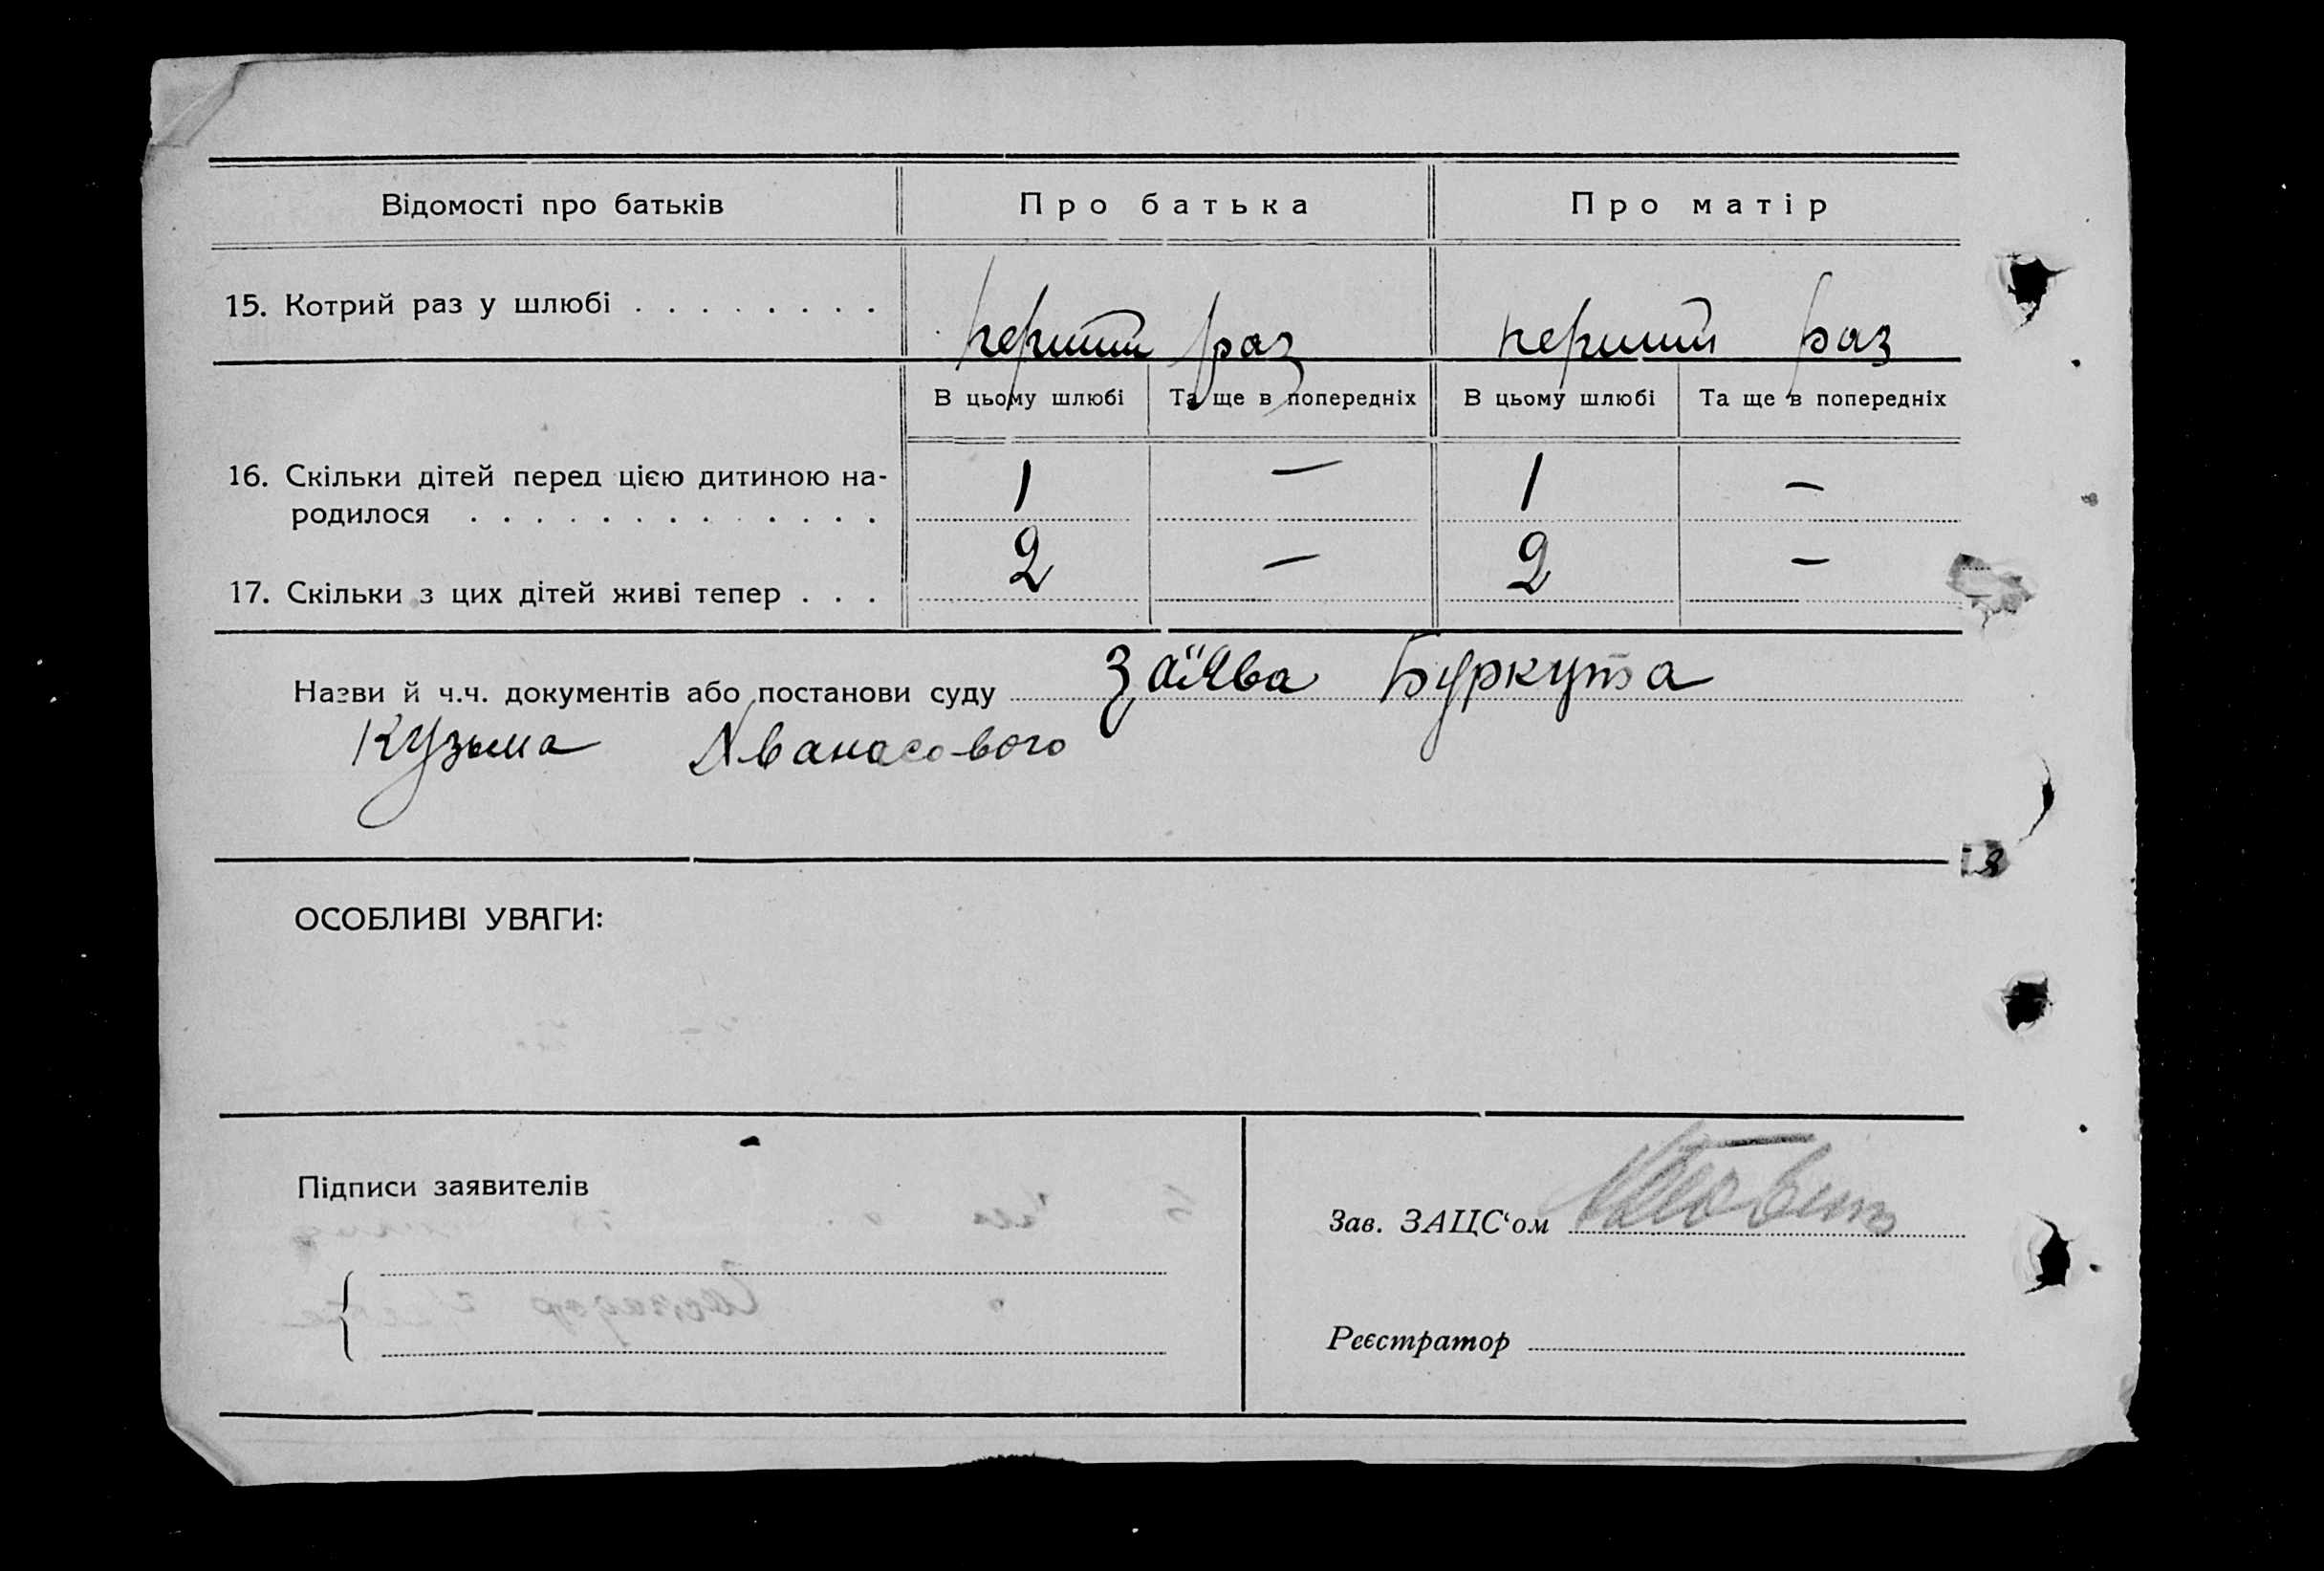 Відомості про батьків Про батька Про матір
15. Котрий раз у шлюбі . . . . . . . . перший раз перший раз
В цьому шлюбі Та ще в попередніх В цьому шлюбі Та ще в попередніх
16. Скільки дітей перед цією дитиною на-
родилося . . . . . . . . . . . . . 1 — 1 —
17. Скільки з цих дітей живі тепер . . . 2 — 2 —
Назви й ч.ч. документів або постанови суду заїява Буркута
Кузьма Аванасового
ОСОБЛИВІ УВАГИ:
Підписи заявителів
Зав. ЗАЦС‘ом
Реєстратор